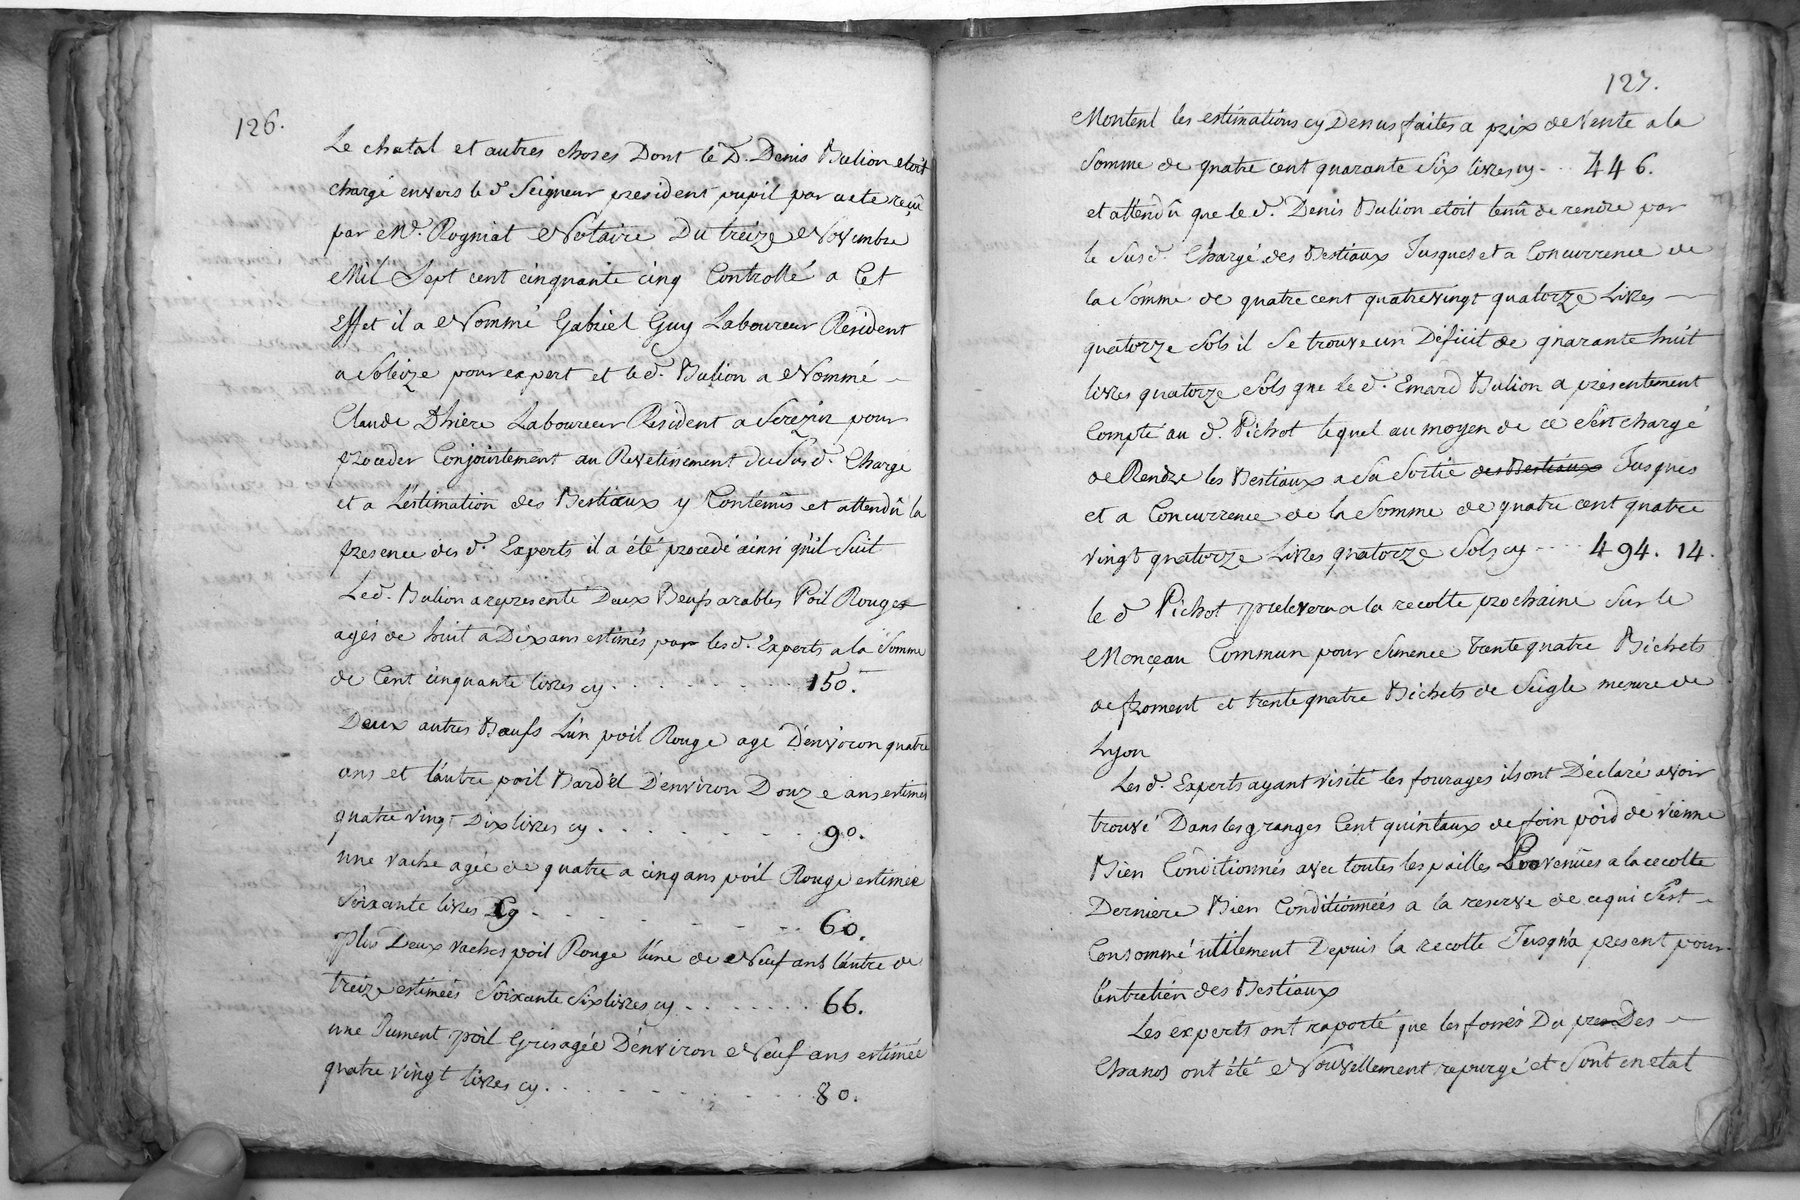 126.
Le chatal et autres choses Dont le d. Denis Bulion etoit
chargé envers le d. Seigneur president pupil par acte reçû
par Me. Rogniat Notaire Du treize Novembre
Mil Sept cent cinquante cinq Controllé a Cet
Effet il a Nommé Gabriel Guy Laboureur Resident
a Soleize pour expert et le d. Bulion a Nommé
Claude Dhiere Laboureur Resident a Serezin pour
proceder Conjointement au Revetissement du Sus d. Chargé
et a L'estimation des Bestiaux y Contenus et attendû la
presence des d. Experts il a été procedé ainsi qu'il Suit
Le d. Bulion a representé Deux Beufs arables Poil Rouges
agés de huit a Dix ans estimés par les d. Experts a la Somme
de Cent cinquante livres cy . . . . . . . 150.
Deux autres Bœufs L'un poil Rouge agé D'environ quatre
ans et l'autre poil Bardel D'environ Douze ans estimés
quatre vingt Dix livres cy . . . . . . . 90.
une vache agée de quatre a cinq ans poil Rouge estimée
Soixante livres Cy . . . . . . . 60.
Plus Deux vaches poil Rouge l'une de Neuf ans l'autre de
treize estimées Soixante Six livres cy . . . . . . . 66.
une Jument poil Gris agée D'environ Neuf ans estimée
quatre vingt livres cy . . . . . . . 80.
127.
Montent les estimations cy Dessus faites a prix de Vente a la
Somme de quatre cent quarante Six livres cy . . . 446.
et attendû que le d. Denis Bulion etoit tenû de rendre par
le Sus d. Chargé des Bestiaux Jusques et a Concurrence de
la Somme de quatre cent quatre vingt quatorze Livres
quatorze Sols il Se trouve un Déficit de quarante huit
livres quatorze Sols que le d. Emard Bulion a presentement
Compté au d. Pichot lequel au moyen de ce s'est chargé
de Rendre les Bestiaux a Sa Sortie des Bestiaux Jusques
et a Concurrence de la Somme de quatre cent quatre
vingt quatorze Livres quatorze Sols cy . . . . 494. 14.
le d Pichot prelevera a la recolte prochaine Sur le
Monçeau Commun pour Semence trente quatre Bichets
de froment et trente quatre Bichets de Seigle mesure de
Lyon
Les d. Experts ayant visité les fourages ils ont Déclaré avoir
trouvé Dans les granges Cent quintaux de foin poid de vienne
Bien Conditionnés avec toutes les pailles Provenües a la recolte
Derniere Bien Conditionnées a la reserve de ce qui S'est
Consommé utilement Depuis la recolte Jusqu'a present pour
l'entretien des Bestiaux
Les experts ont raporté que les fossés Du pre Des
Chanos ont été Nouvellement repurgé et Sont en etat